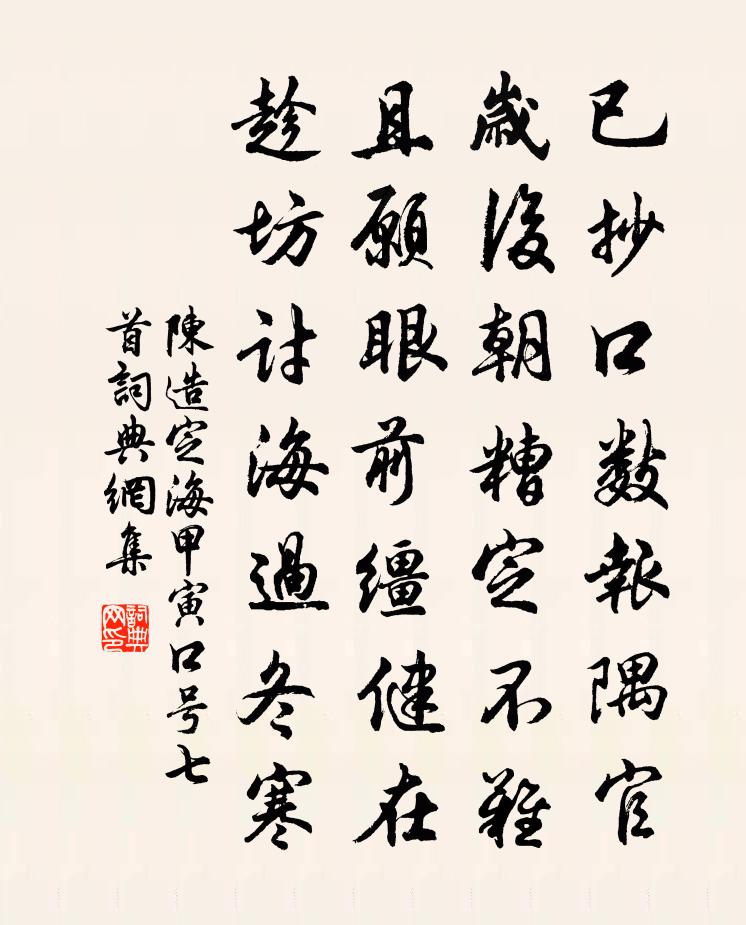 已抄口數報隅官
歲後朝糟定不難
且願眼前纏健在
趁坊討海過冬寒
陳造定海甲寅口号七
首詞典網集
詞典網印